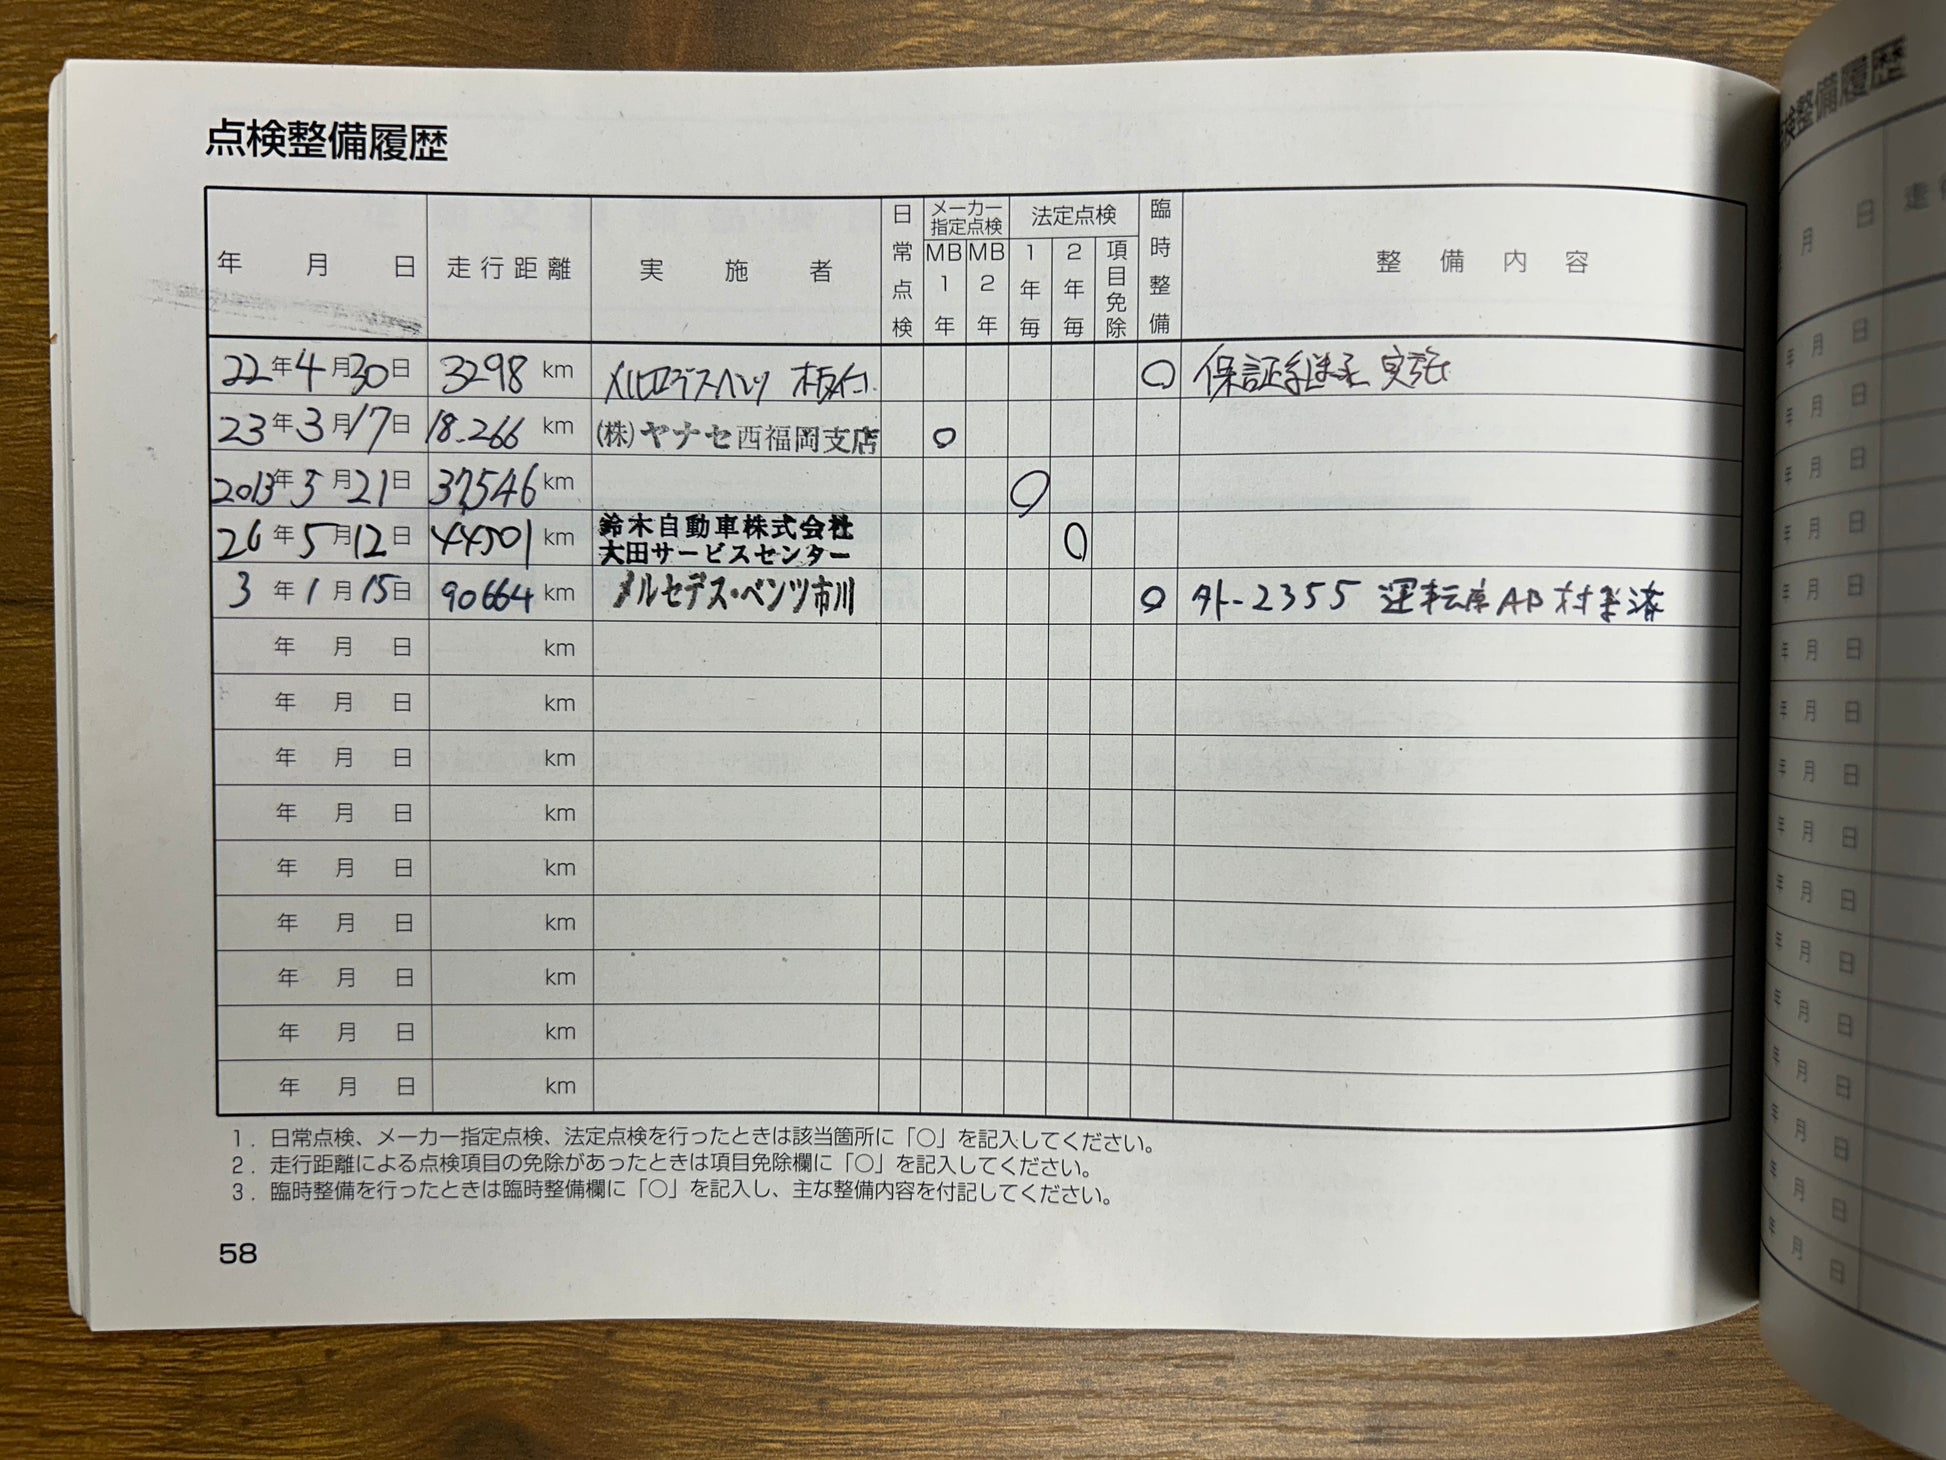 点検整備履歴
年 月 日 走行距離 実施者 日常点検 メーカー指定点検 MB1年 MB2年 法定点検 1年毎 2年毎 項目免除 臨時整備 整備内容
22年4月30日 3298 km メルセデスベンツ 板付 ○ 保証継承 実施
23年3月17日 18.266 km (株)ヤナセ西福岡支店 ○
2013年5月21日 37,546 km ○
26年5月12日 44501 km 鈴木自動車株式会社
大田サービスセンター ○
3年1月15日 90664 km メルセデス・ベンツ市川 ○ 外-2355 運転席AB対策済
年 月 日 km
年 月 日 km
年 月 日 km
年 月 日 km
年 月 日 km
年 月 日 km
年 月 日 km
年 月 日 km
年 月 日 km
1. 日常点検、メーカー指定点検、法定点検を行ったときは該当箇所に「○」を記入してください。
2. 走行距離による点検項目の免除があったときは項目免除欄に「○」を記入してください。
3. 臨時整備を行ったときは臨時整備欄に「○」を記入し、主な整備内容を付記してください。
58
点検整備履歴
月 日
年 月 日
年 月 日
年 月 日
年 月 日
年 月 日
年 月 日
年 月 日
年 月 日
年 月 日
年 月 日
年 月 日
年 月 日
年 月 日
年 月 日
年 月 日